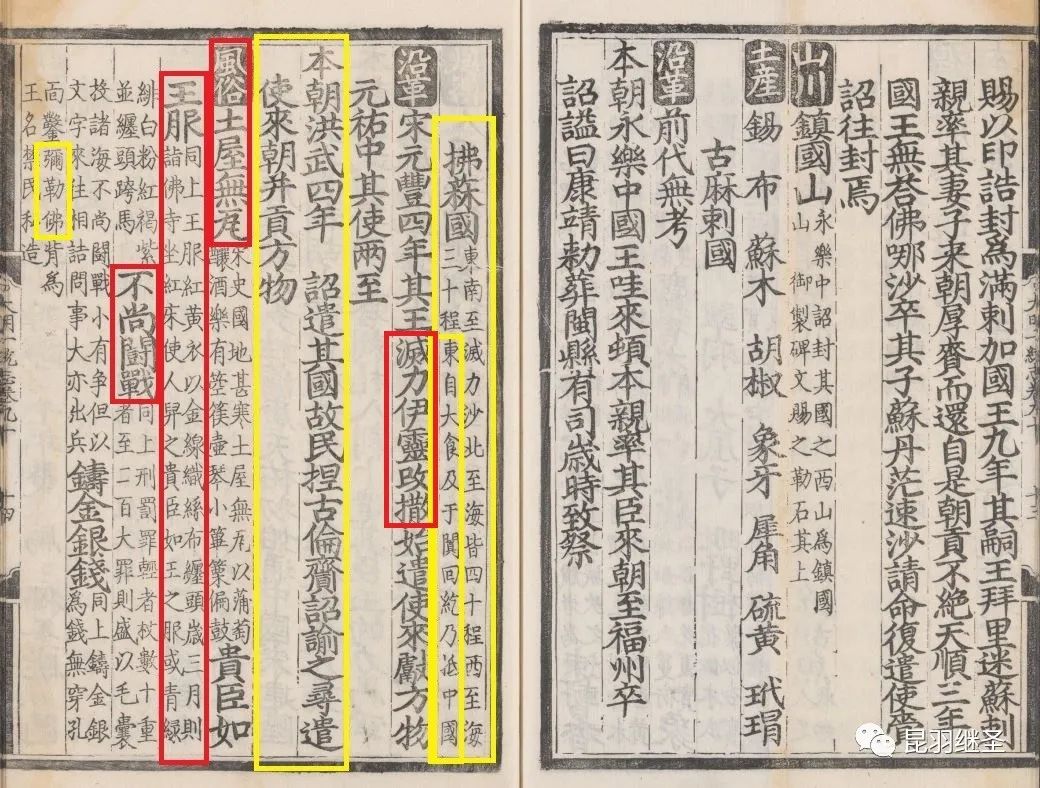 賜以印誥封爲滿剌加國王九年其嗣王拜里迷蘇剌
親率其妻子来朝厚賚而還自是朝貢不絶天順三年
國王無荅佛哪沙卒其子蘇丹茫速沙請命復遣使賫
詔往封焉
山川 鎮國山 永樂中詔封其國之西山爲鎮國山御製碑文賜之勒石其上
土産 錫 布 蘇木 胡椒 象牙 犀角 硫黄 玳瑁
古麻剌國
沿革 前代無考
本朝永樂中國王哇來頓本親率其臣來朝至福州卒
詔謚曰康靖勑葬閩縣有司歳時致祭
拂菻國 東南至滅力沙北至海皆四十程西至海三十程東自大食及于闐回紇乃抵中國
沿革 宋元豐四年其王滅力伊靈改撒始遣使來獻方物
元祐中其使兩至
本朝洪武四年 詔遣其國故民捏古倫賫詔諭之尋遣
使來朝并貢方物
風俗 土屋無瓦 宋史國地甚寒土屋無瓦以蒲萄釀酒樂有箜篌壷琴小篳篥偏鼓 貴臣如
王服 同上王服紅黄衣以金線織絲布纏頭歳三月則詣佛寺坐紅床使人舁之貴臣如王之服或青緑
緋白粉紅褐紫並纏頭跨馬 不尚闘戰 同上刑罰罪輕者杖數十重者至二百大罪則盛以毛囊
投諸海不尚闘戰小有爭但以文字來往相詰問事大亦出兵 鑄金銀錢 同上鑄金銀爲錢無穿孔
面鑿彌勒佛背爲王名禁民私造
大明一統志卷九十 十四
昆羽继圣